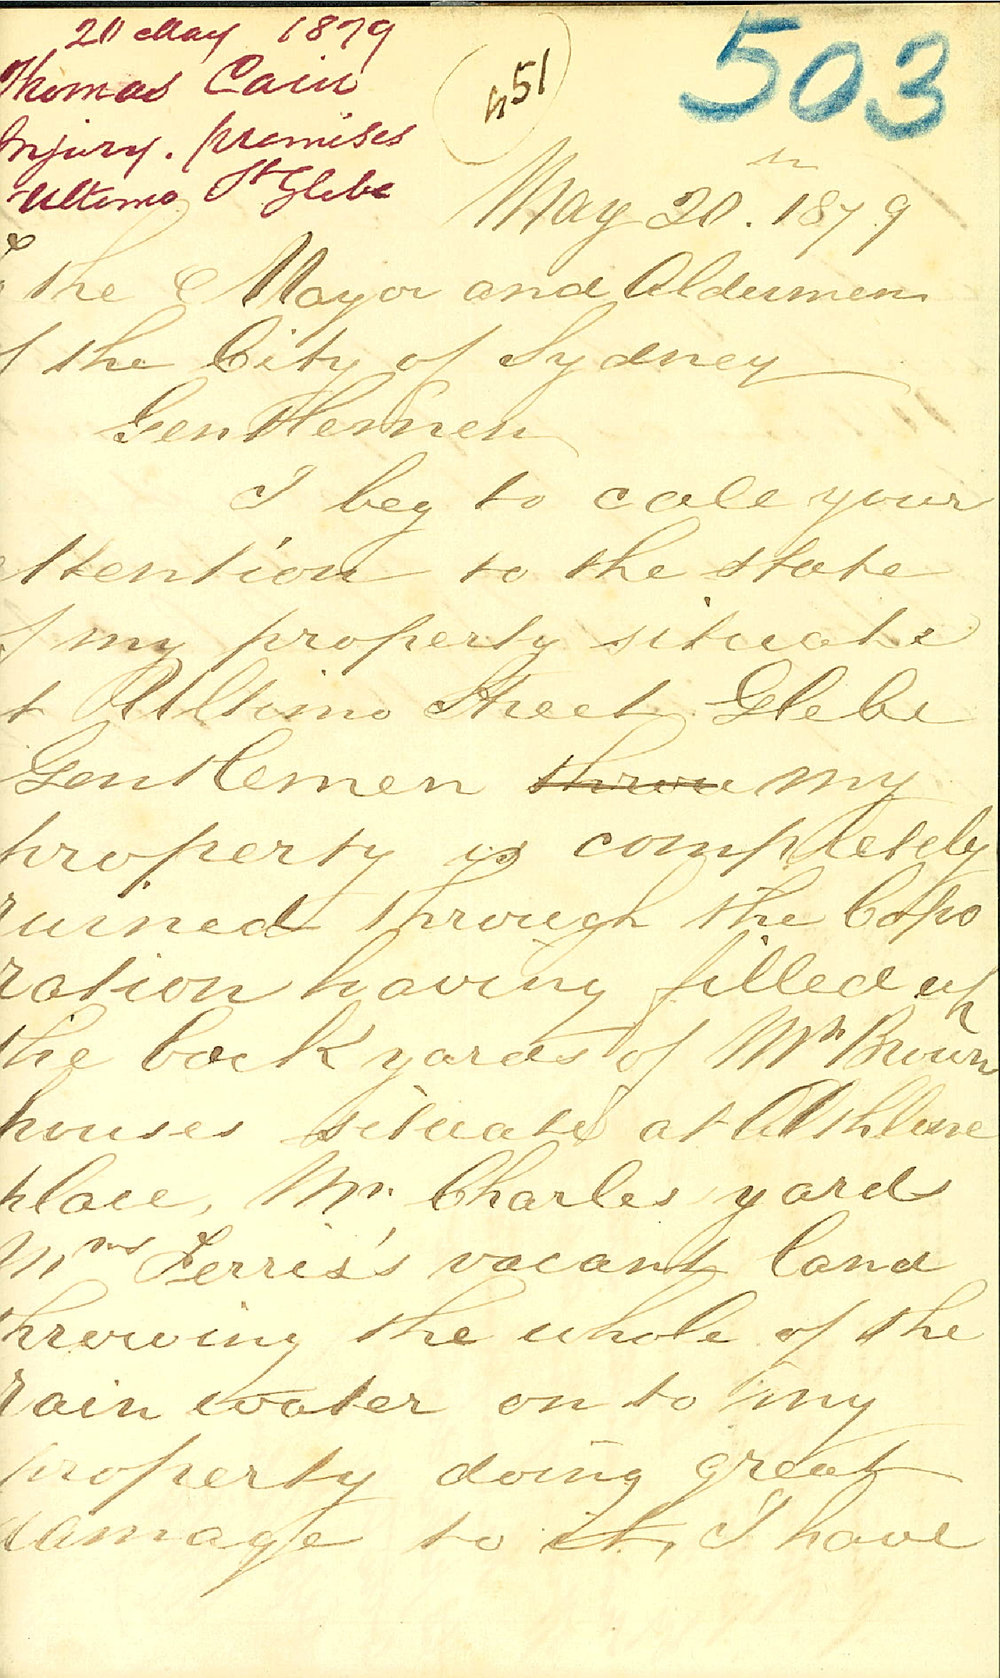 20 May 1879
Thomas Cain
Injury. premises
Ultimo St Glebe
451
503
May 20th. 1879
To the Mayor and Aldermen
of the City of Sydney
Gentlemen
I beg to cale your
attention to the state
of my property situate
at Ultimo Street Glebe
Gentlemen throu my
property is completely
ruined through the Corpo
ration having filled up
the back yards of Mr Brown
houses situate at Athlone
place, Mr. Charles yard
Mrs Ferris's vacant land
throwing the whole of the
rain water on to my
property doing great
damage to it, I have